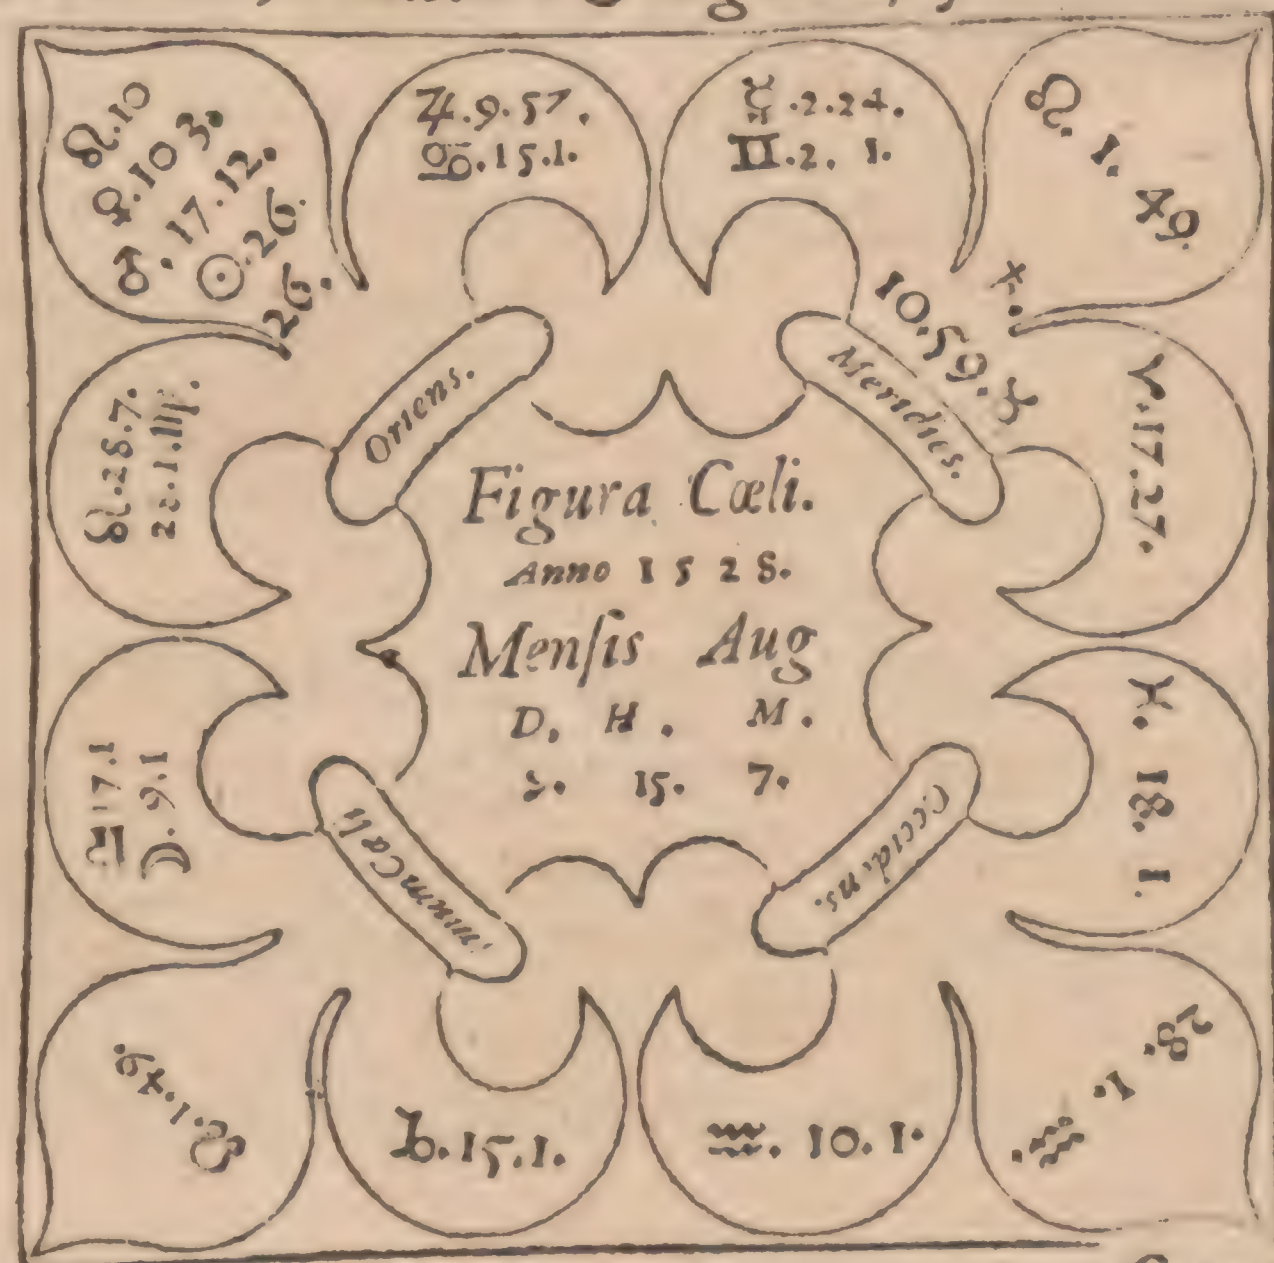 ♌.10
♀.10 3.
♂.17.12.
☉.26.
26.
♃.9.57.
♋.15.1.
☿.2.24.
♊.2. 1.
☊. 1. 49.
10.59.♉
♈.17.27.
♓. 18. 1.
28. 1. ♒.
♒. 10. 1.
♑.15.1.
☋.1.49.
♎17.1
☽.9.1
♌.28.7.
22.1.♍.
Oriens.
Meridies.
Occidens.
Figura Cœli.
Anno 1 5 2 8.
Menſis Aug
D. H. M.
15. 7.